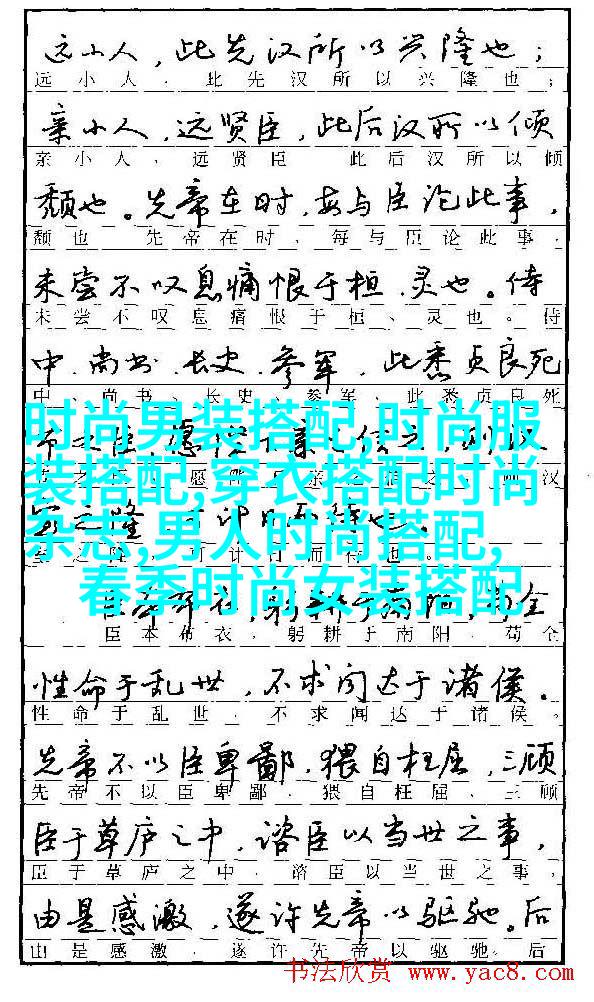 远小人，此先汉所以兴隆也；
远小人，此先汉所以兴隆也；
亲小人，远贤臣，此后汉所以倾
亲小人，远贤臣 此后汉所以倾
颓也。先帝在时，每与臣论此事，
颓也 先帝在时，每与臣论此事，
未尝不叹息痛恨于桓、灵也。侍
未尝不叹息痛恨于桓、灵也。侍
中、尚书、长史、参军，此悉贞良死
中、尚书、长史、参军，此悉贞良死
时尚男装搭配,时尚服
装搭配,穿衣搭配时尚
杂志,男人时尚搭配,
春季时尚女装搭配
之臣 愿
愿 汉
之隆 可计日而待也。
可计日而待也。
臣本布衣，躬耕于南阳，苟全
臣本布衣，躬耕于南阳，苟全
性命于乱世，不求闻达于诸侯。
性命于乱世，不求闻达于诸侯。
先帝不以臣卑鄙，猥自枉屈，三顾
先帝不以臣卑鄙，猥自枉屈、三顾
臣于草庐之中，谘臣以当世之事，
臣于草庐之中，谘臣以当世之事，
由是感激，遂许先帝以驱驰。后
由是感激，遂许先帝以驱驰。后
书法欣赏 www.yac8.com